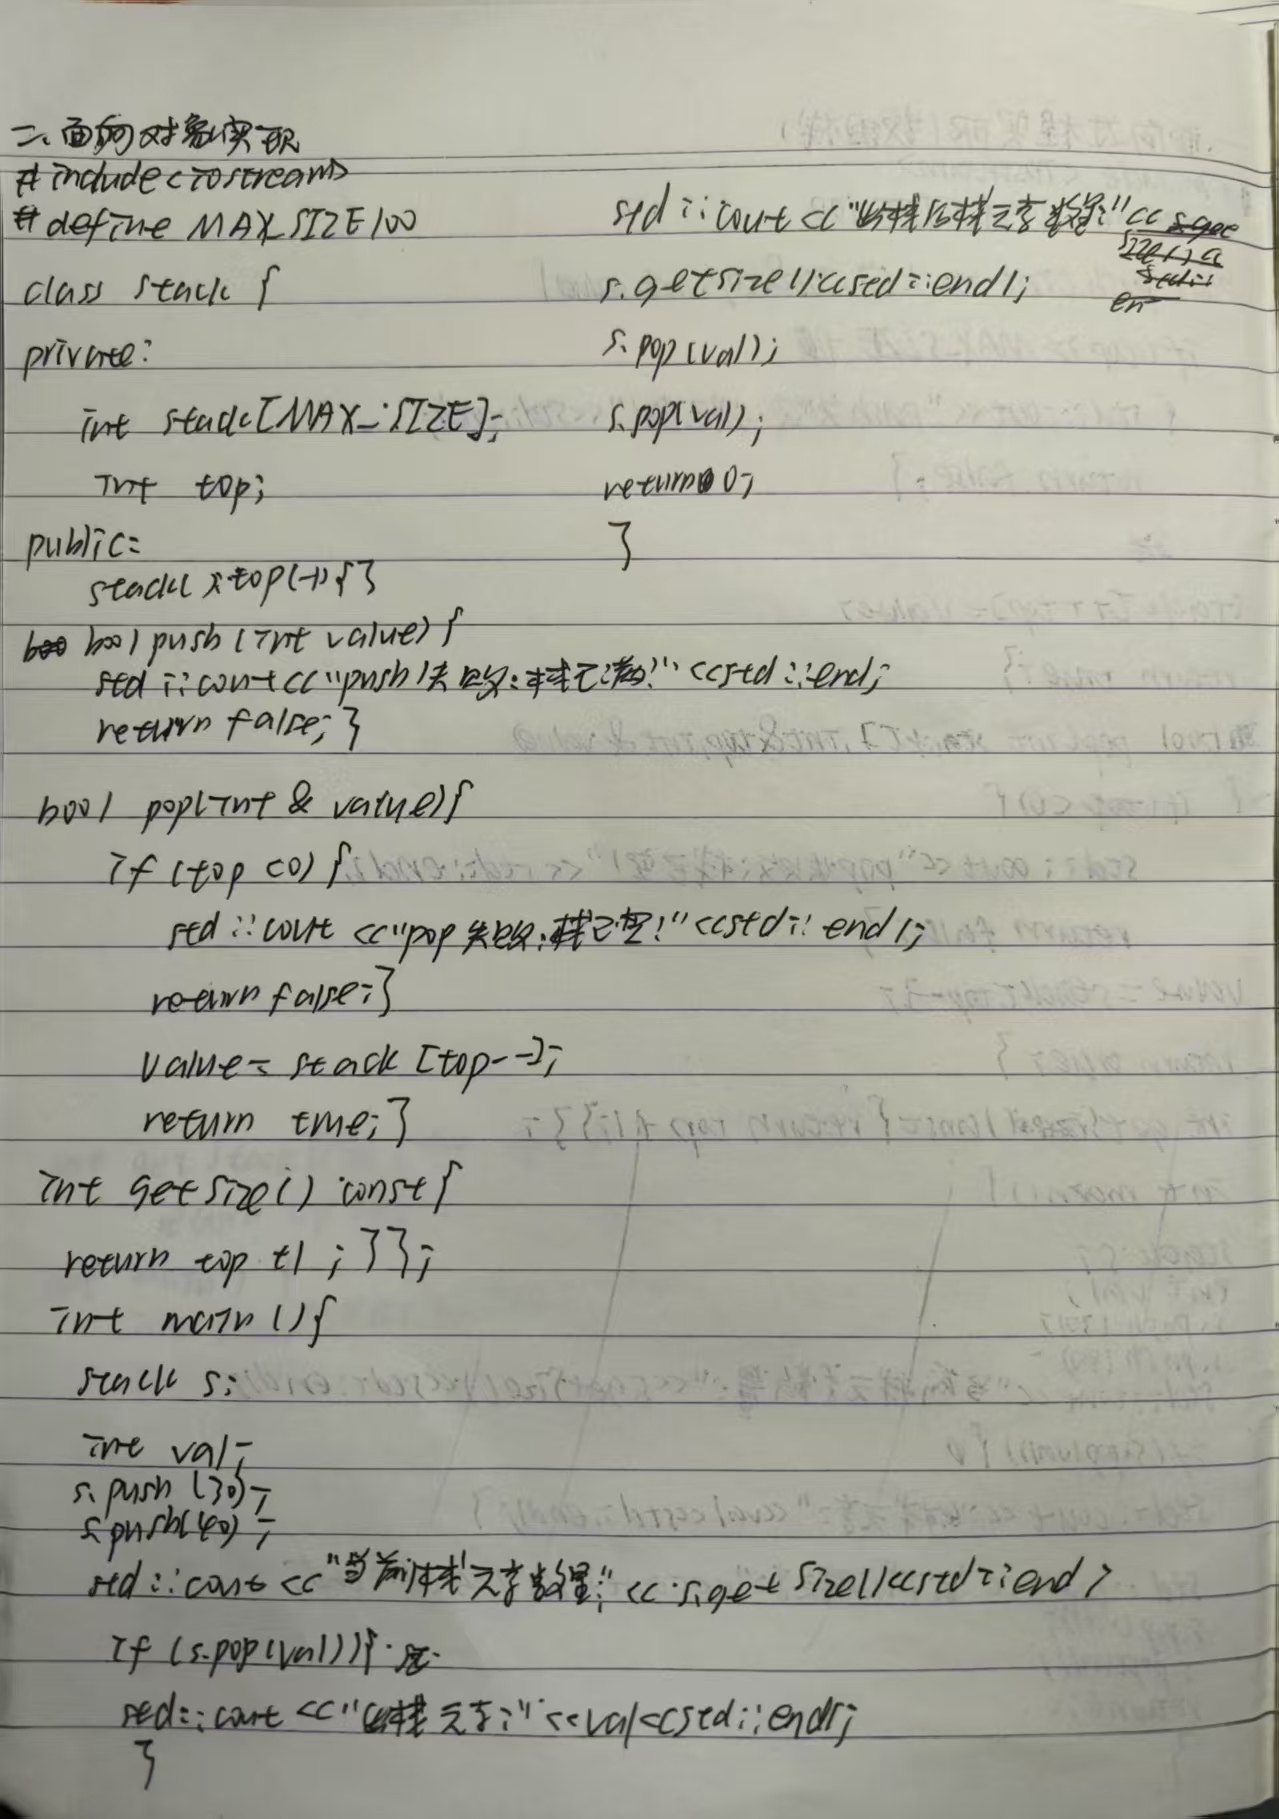 二、面向对象实现
#include<iostream>
#define MAX_SIZE 100
class stack {
private:
int stack[MAX_SIZE];
int top;
public:
stack():top(-1){}
bool push(int value){
std::cout<<"push失败:栈已满!"<<std::end;
return false;}
bool pop(int & value){
if (top <0) {
std::cout <<"pop失败:栈已空!"<<std::endl;
return false;}
value= stack [top--];
return true;}
int getsize() const{
return top +1 ;}};
int main (){
stack s;
int val;
s.push (30);
s.push(40);
std::cout <<"当前栈元素数量:"<< s.getsize()<<std::endl
if (s.pop(val)){
std::cout <<"出栈元素:"<<val<<std::endl;
}
std::cout <<"出栈后栈元素数量:"<<
s.getsize()<<std::endl;
s.pop(val);
s.pop(val);
return 0;
}